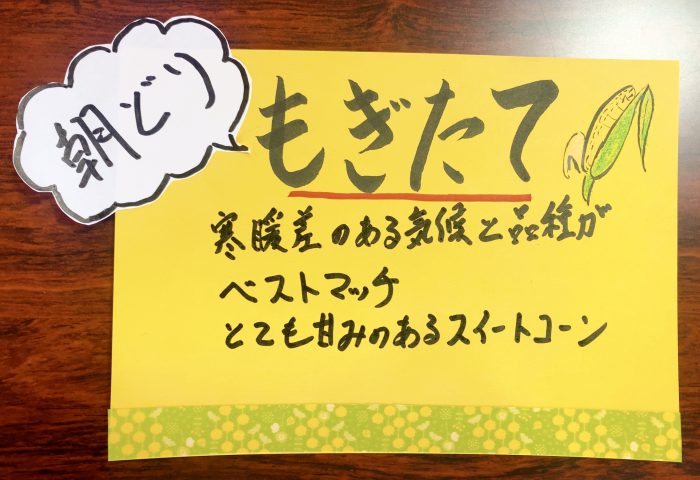 朝どり
もぎたて
寒暖差のある気候と品種が
ベストマッチ
とても甘みのあるスイートコーン